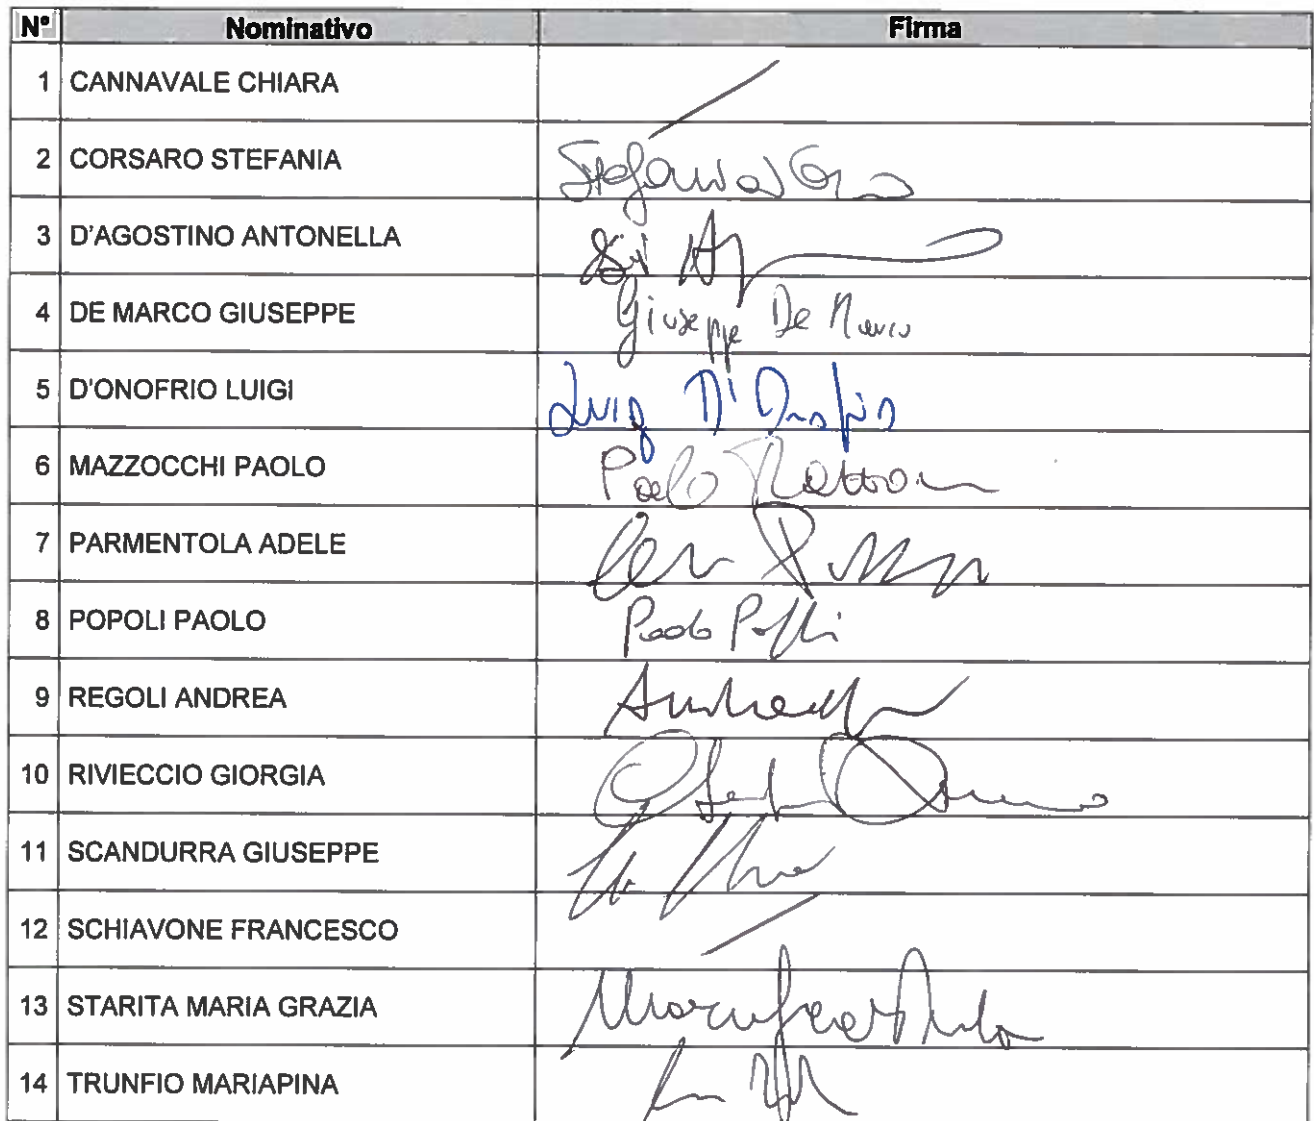 N° Nominativo Firma
1 CANNAVALE CHIARA
2 CORSARO STEFANIA Stefania
3 D'AGOSTINO ANTONELLA
4 DE MARCO GIUSEPPE Giuseppe De Marco
5 D'ONOFRIO LUIGI Luigi D'Onofrio
6 MAZZOCCHI PAOLO Paolo
7 PARMENTOLA ADELE
8 POPOLI PAOLO Paolo Popoli
9 REGOLI ANDREA Andrea
10 RIVIECCIO GIORGIA
11 SCANDURRA GIUSEPPE
12 SCHIAVONE FRANCESCO
13 STARITA MARIA GRAZIA
14 TRUNFIO MARIAPINA